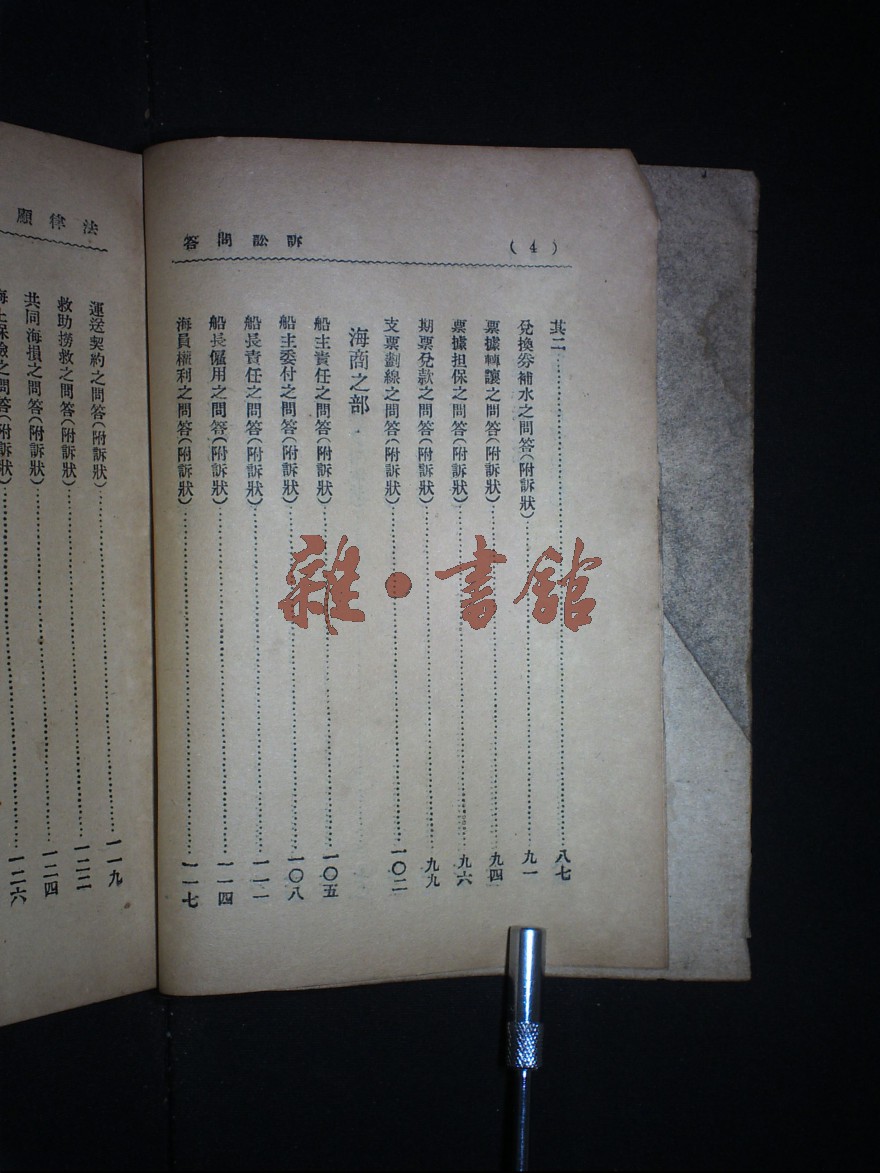 訴訟問答 (4)
其二……八七
兌換券補水之問答(附訴狀)……九一
票據轉讓之問答(附訴狀)……九四
票據担保之問答(附訴狀)……九六
期票兌款之問答(附訴狀)……九九
支票劃線之問答(附訴狀)……一〇二
海商之部
船主責任之問答(附訴狀)……一〇五
船主委付之問答(附訴狀)……一〇八
船長責任之問答(附訴狀)……一一一
船長僱用之問答(附訴狀)……一一四
海員權利之問答(附訴狀)……一一七
法律顧
運送契約之問答(附訴狀)……一一九
救助撈救之問答(附訴狀)……一二二
共同海損之問答(附訴狀)……一二四
海上保險之問答(附訴狀)……一二六
雜·書館